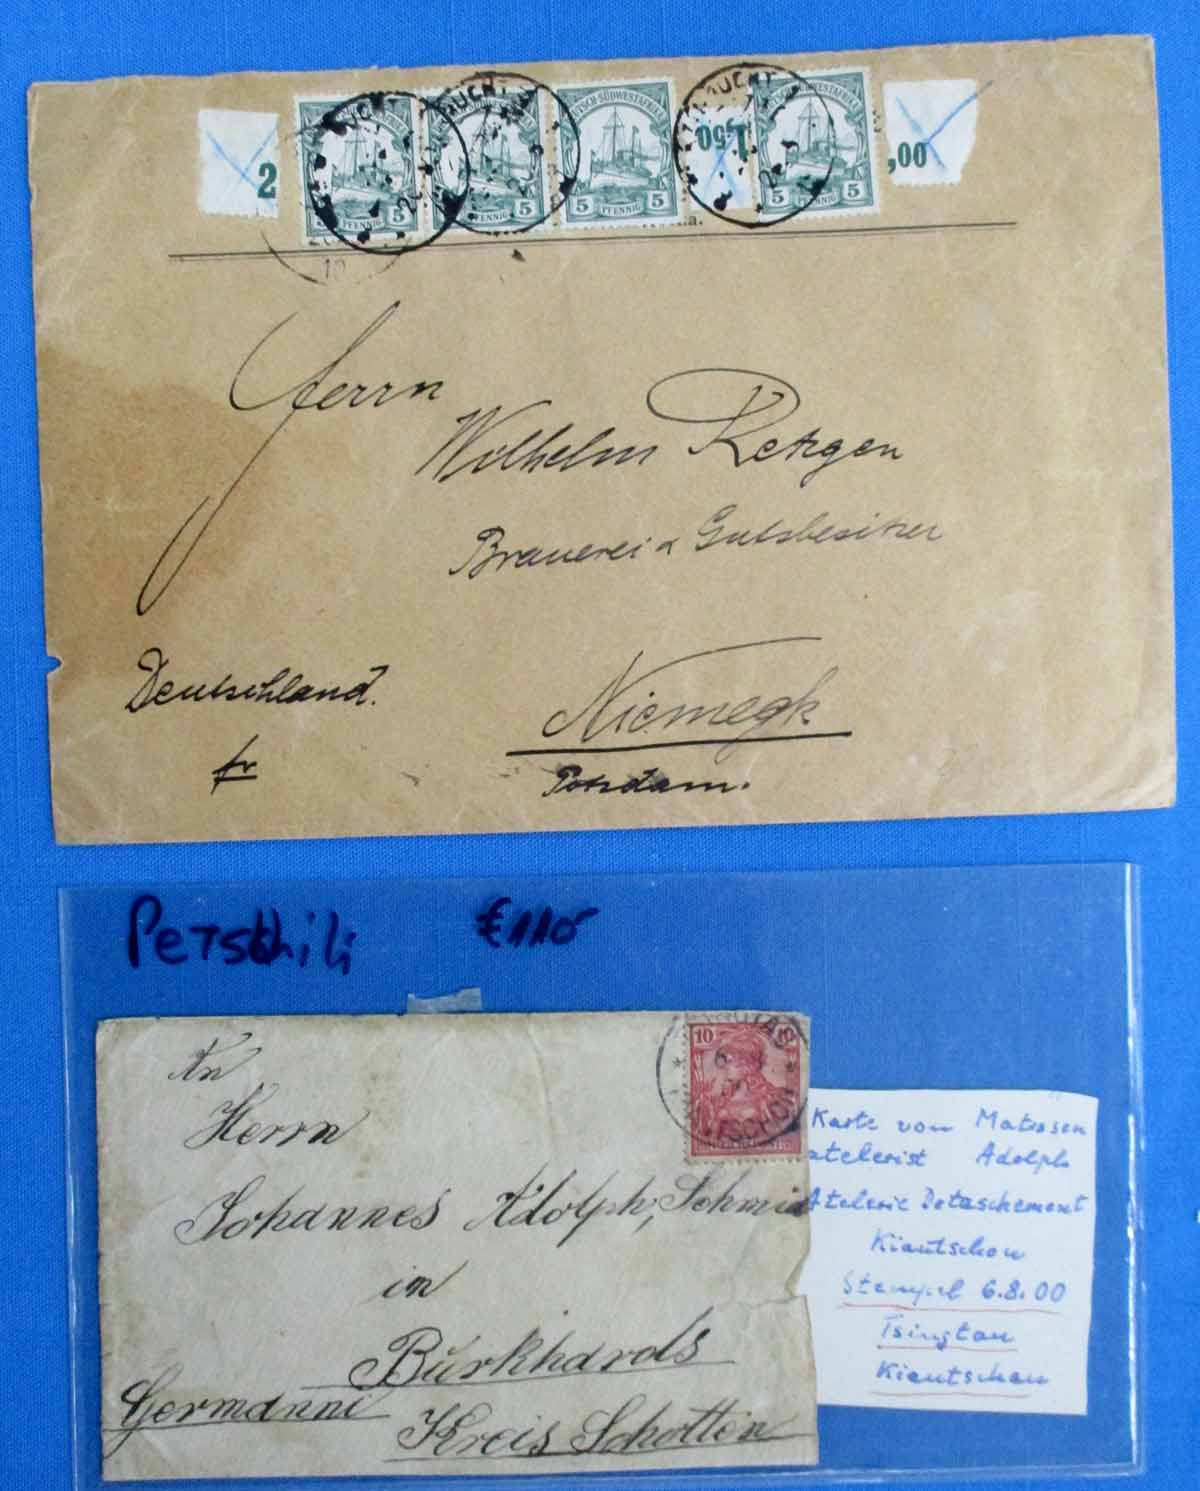 2
1,50
,00
DEUTSCH-SÜDWESTAFRIKA
5 PFENNIG 5
5 PFENNIG 5
5 PFENNIG 5
5 PFENNIG 5
Herrn
Wilhelm Retzgen
Brauerei u Gutsbesitzer
Deutschland.
fr
Niemegk
Potsdam.
Petschili €110
10
An
Herrn
Johannes Adolph, Schmid
in
Burkhards
Germanni
Kreis Schotten
Karte von Matrosen
Adolph
Detaschement
Kiautschou
Stempel 6.8.00
Tsingtau
Kiautschou